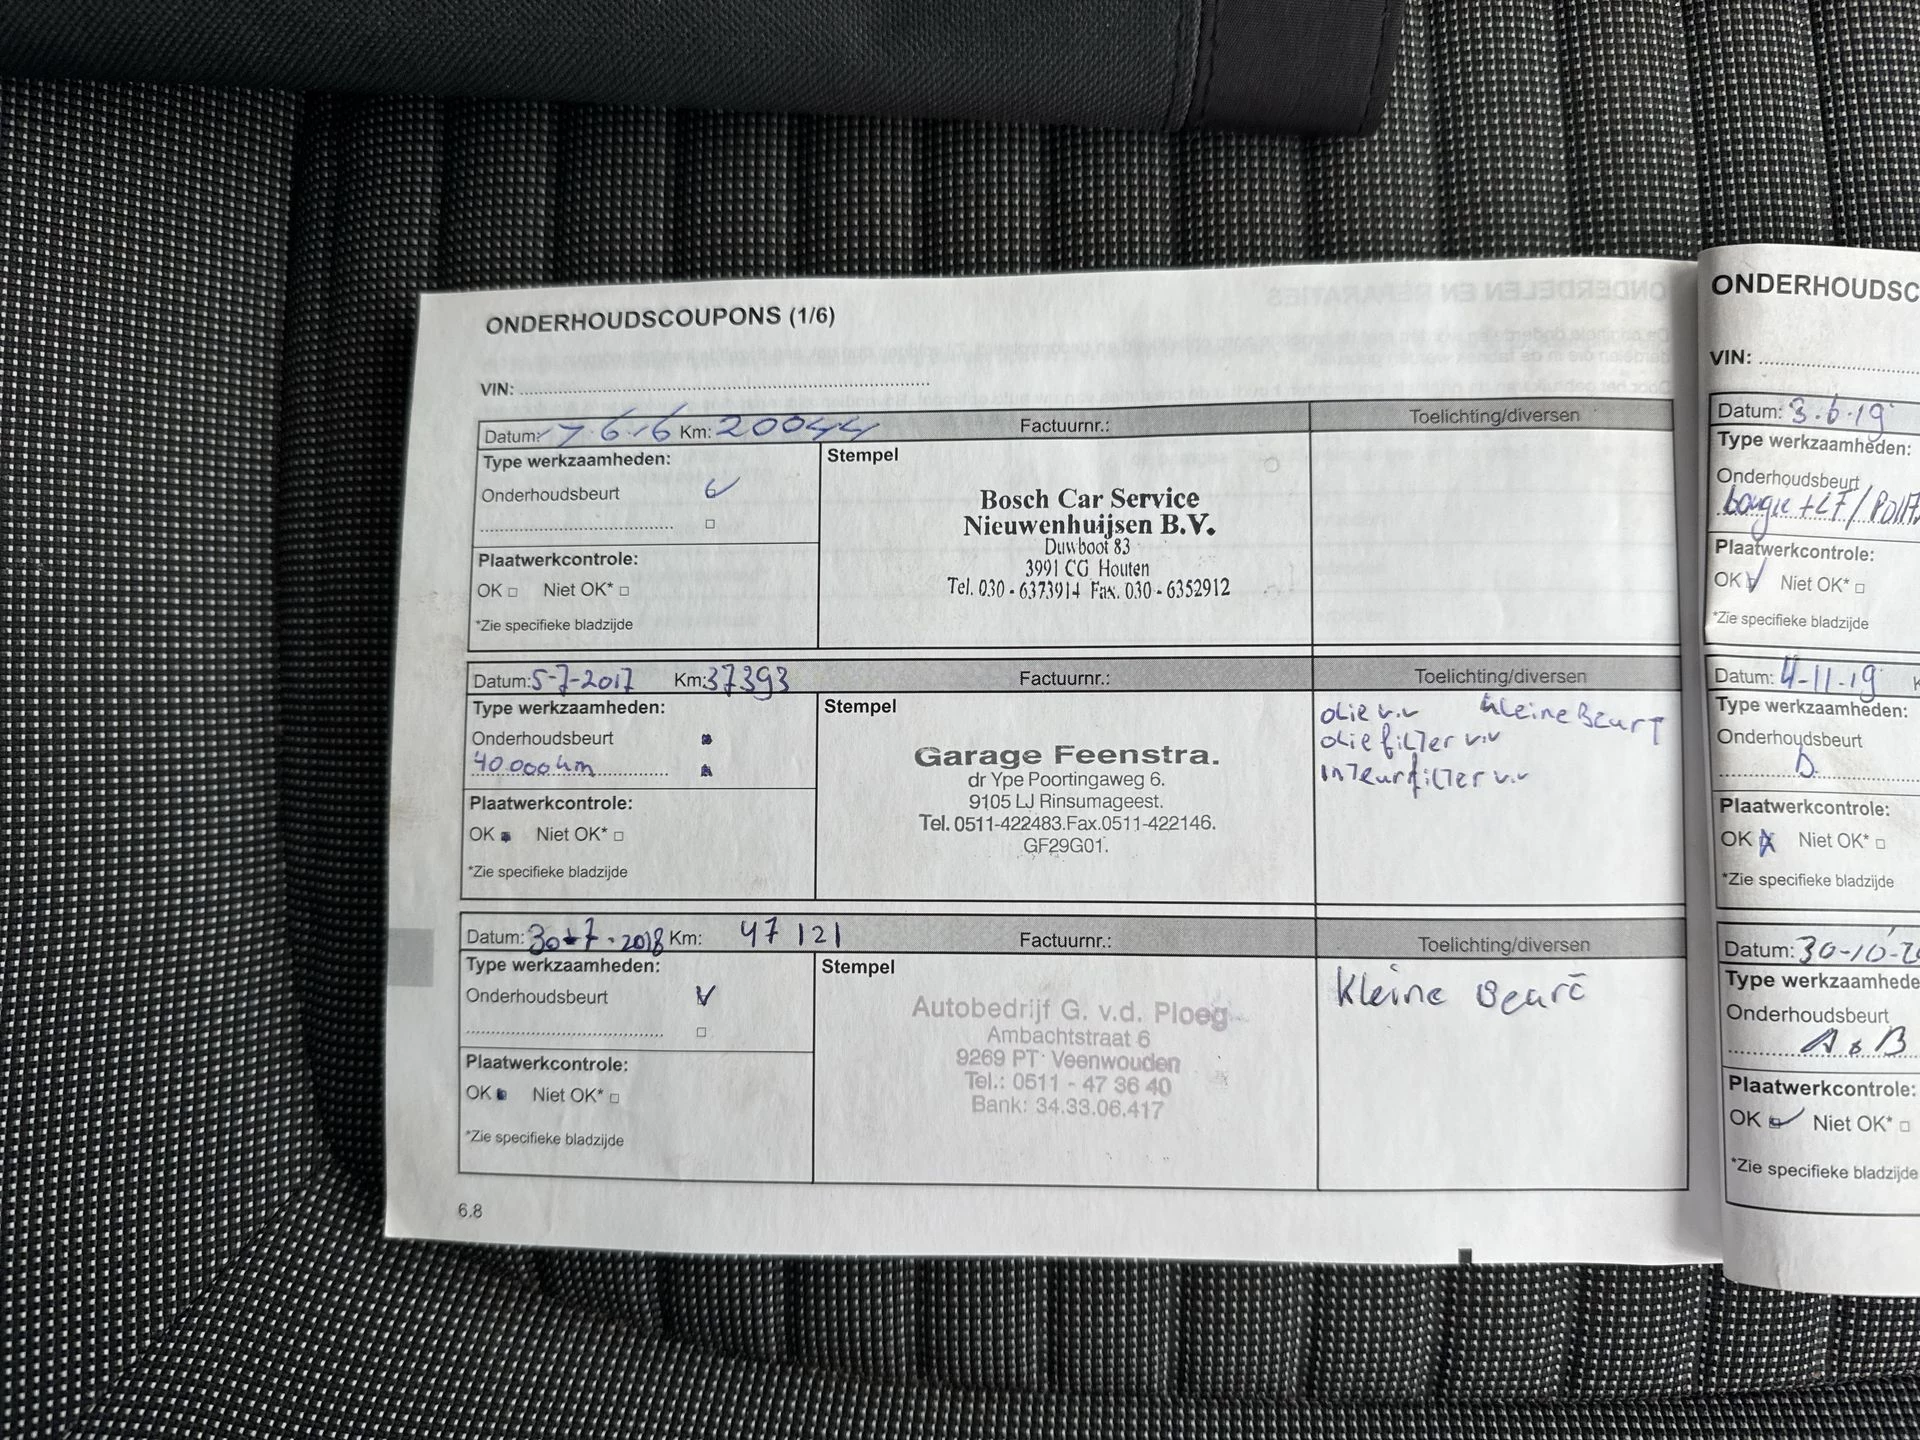 ONDERHOUDSCOUPONS (1/6)
VIN:
Datum: 7-6-16 Km: 20044 Factuurnr.: Toelichting/diversen
Type werkzaamheden: Stempel
Onderhoudsbeurt
Plaatwerkcontrole:
OK □ Niet OK* □
*Zie specifieke bladzijde
Bosch Car Service
Nieuwenhuijsen B.V.
Duwboot 83
3991 CG Houten
Tel. 030 - 6373914 Fax. 030 - 6352912
Datum: 5-7-2017 Km: 37393 Factuurnr.: Toelichting/diversen
Type werkzaamheden: Stempel
Onderhoudsbeurt
40.000 km
Plaatwerkcontrole:
OK Niet OK* □
*Zie specifieke bladzijde
Garage Feenstra.
dr Ype Poortingaweg 6.
9105 LJ Rinsumageest.
Tel. 0511-422483.Fax.0511-422146.
GF29G01.
olie v.v kleine Beurt
oliefilter v.v
inteurfilter v.v
Datum: 30-7-2018 Km: 47121 Factuurnr.: Toelichting/diversen
Type werkzaamheden: Stempel
Onderhoudsbeurt
Plaatwerkcontrole:
OK Niet OK* □
*Zie specifieke bladzijde
Autobedrijf G. v.d. Ploeg
Ambachtstraat 6
9269 PT Veenwouden
Tel.: 0511 - 47 36 40
Bank: 34.33.06.417
Kleine Beurt
6.8
ONDERHOUDSC
VIN:
Datum: 3.6.19
Type werkzaamheden:
Onderhoudsbeurt
bougie + LF /
Plaatwerkcontrole:
OK Niet OK* □
*Zie specifieke bladzijde
Datum: 4-11-19 K
Type werkzaamheden:
Onderhoudsbeurt
Plaatwerkcontrole:
OK Niet OK* □
*Zie specifieke bladzijde
Datum: 30-10-2
Type werkzaamhede
Onderhoudsbeurt
A & B
Plaatwerkcontrole:
OK Niet OK* □
*Zie specifieke bladzijde